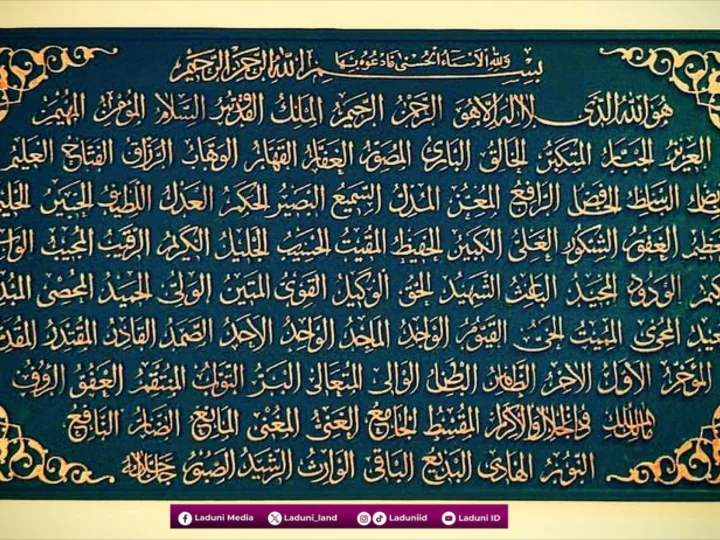 بسم الله الرحمن الرحيم
ولله الأسماء الحسنى فادعوه بها
هو الله الذي لا إله إلا هو الرحمن الرحيم الملك القدوس السلام المؤمن المهيمن
العزيز الجبار المتكبر الخالق البارئ المصور الغفار القهار الوهاب الرزاق الفتاح العليم
الباسط الخافض الرافع المعز المذل السميع البصير الحكم العدل اللطيف الخبير
الغفور الشكور العلي الكبير الحفيظ المقيت الحسيب الجليل الكريم الرقيب المجيب
الودود المجيد الباعث الشهيد الحق الوكيل القوي المتين الولي الحميد المحصي
المحيي المميت الحي القيوم الواجد الماجد الواحد الأحد الصمد القادر المقتدر
المؤخر الأول الآخر الظاهر الباطن الوالي المتعالي البر التواب المنتقم العفو الرؤف
مالك الملك ذو الجلال والإكرام المقسط الجامع الغني المغني المانع الضار النافع
النور الهادي البديع الباقي الوارث الرشيد الصبور جل جلاله
Laduni Media
Laduni_land
Laduniid
Laduni ID